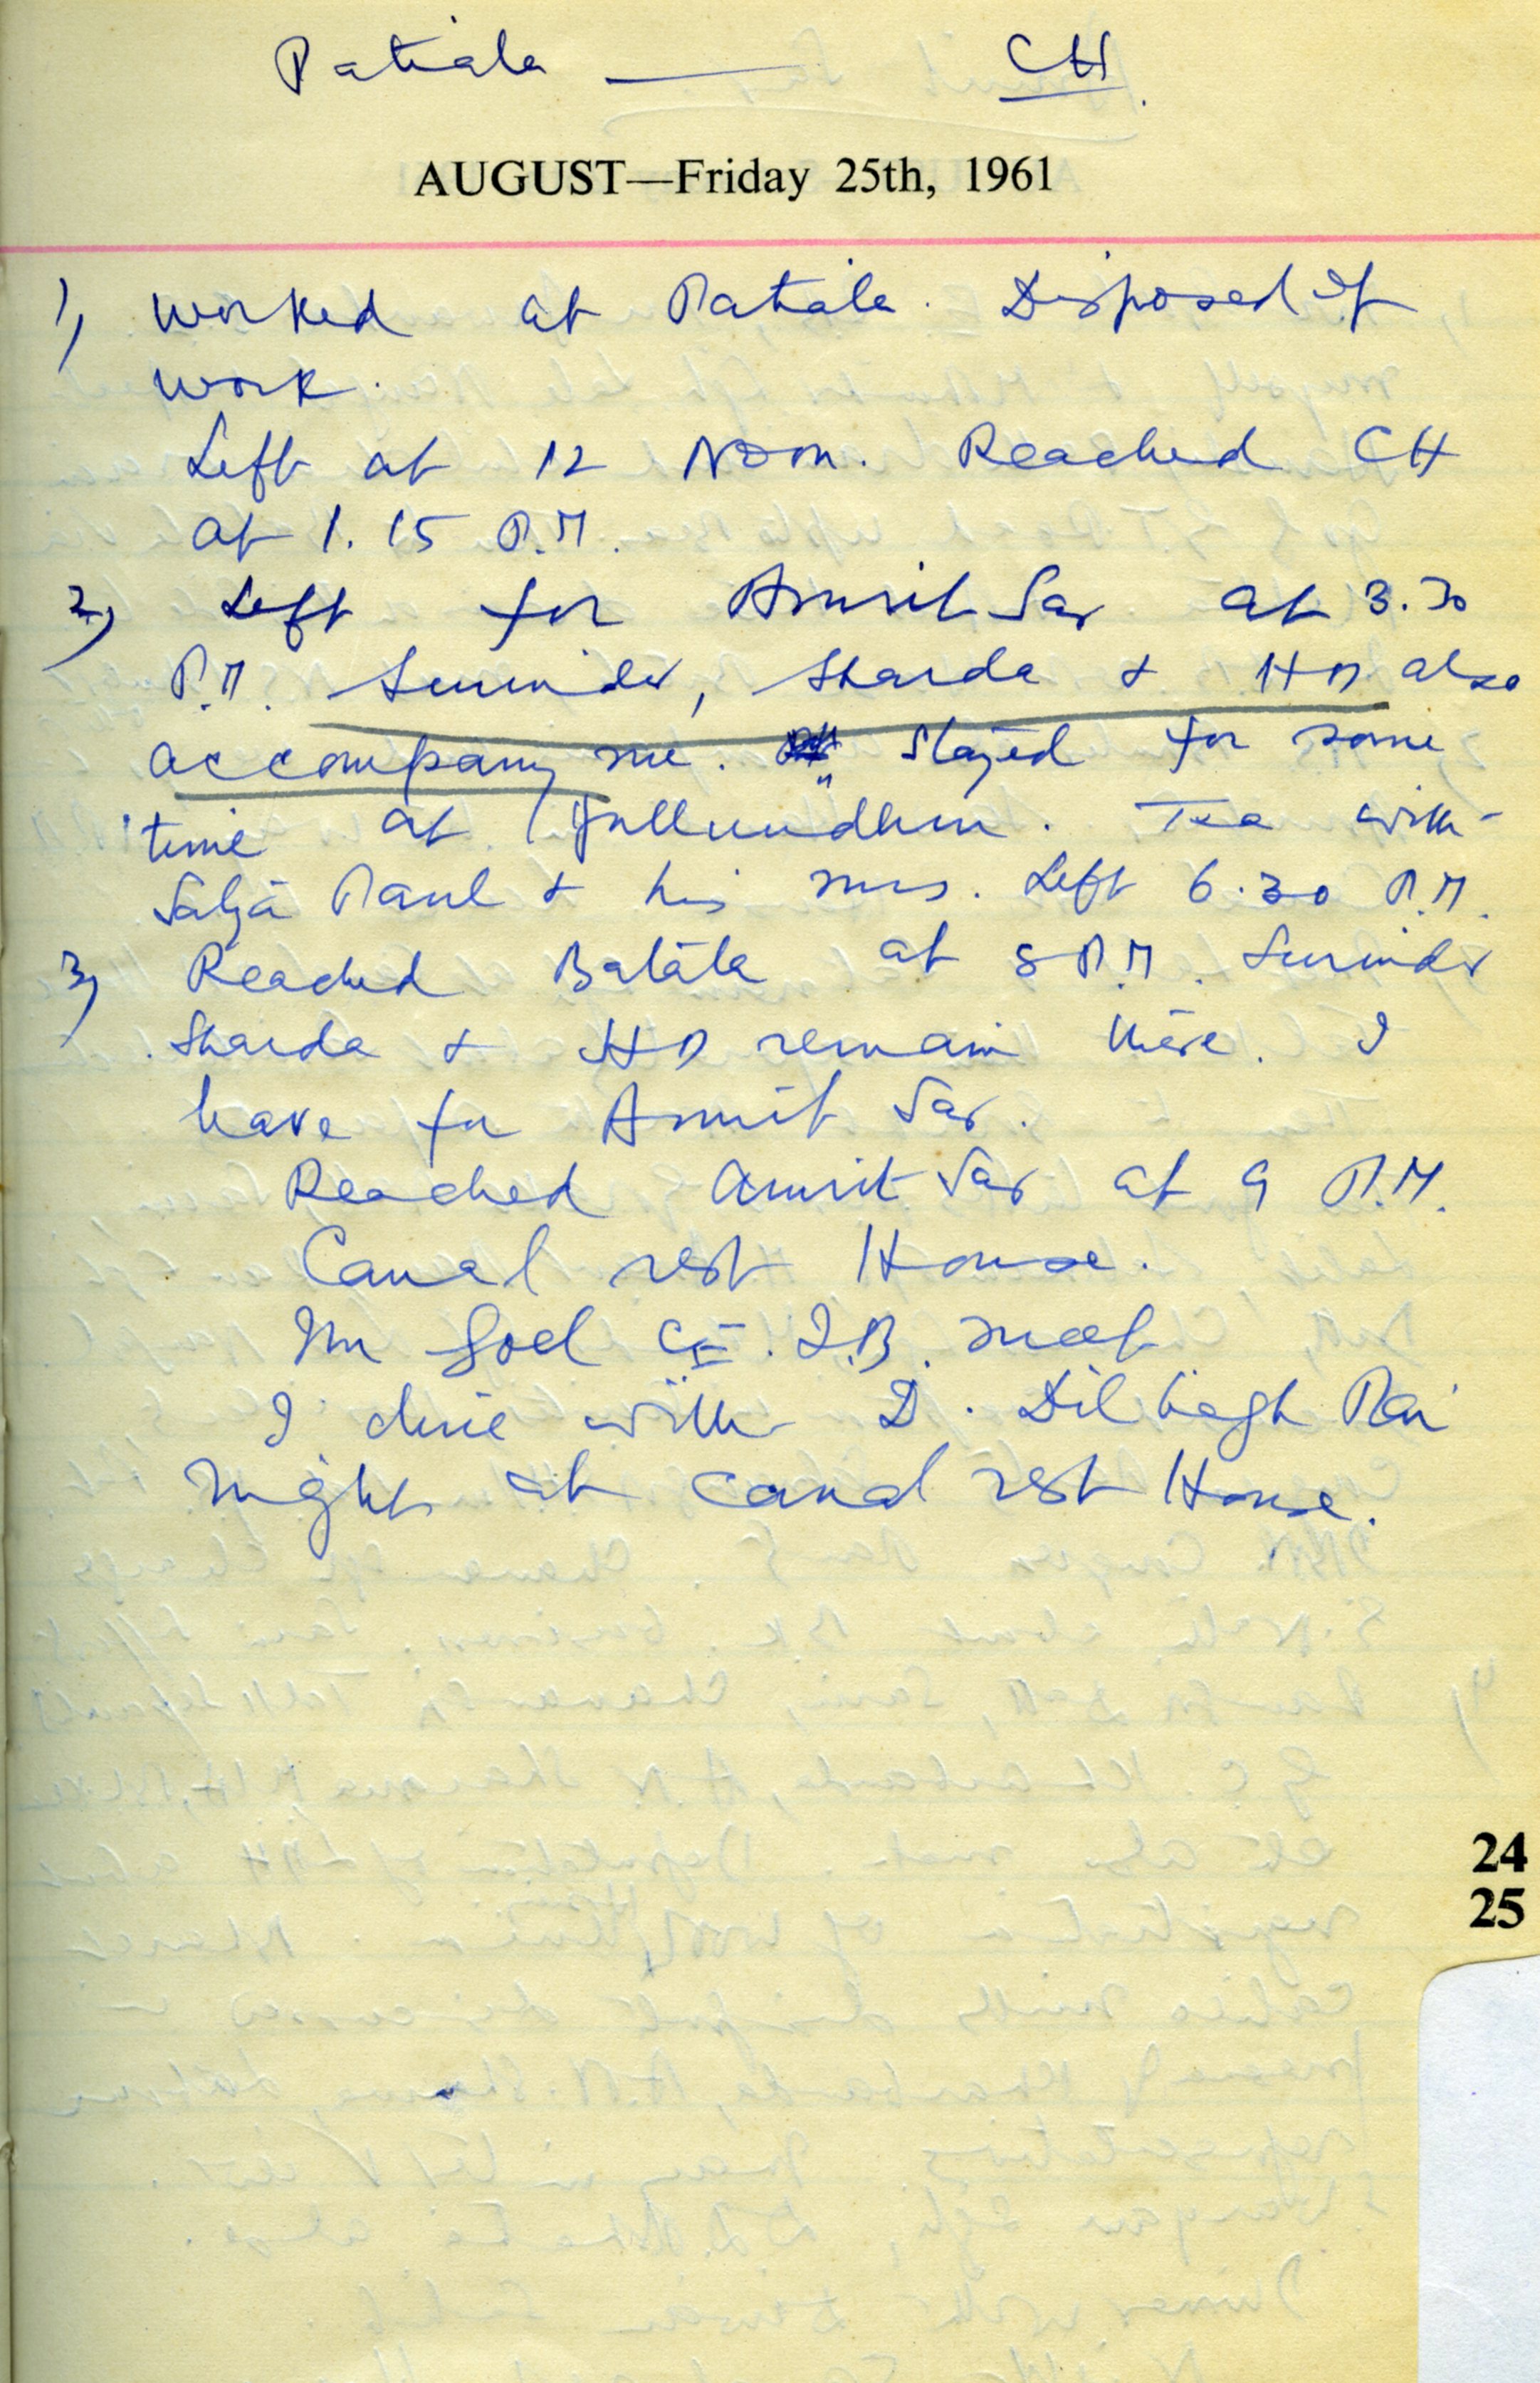 Patiala — CH.
AUGUST—Friday 25th, 1961
1) Worked at Patiala. Disposed of
work.
Left at 12 Noon. Reached CH
at 1.15 P.M.
2) Left for Amrit Sar at 3.30
P.M. Surinder, Sharda & HD also
accompany me. Stayed for some
time at Jullundhur. Tea with
Satya Paul & his mrs. Left 6.30 P.M.
3) Reached Batala at 8 P.M. Surinder
Sharda & HD remain there. I
leave for Amrit Sar.
Reached Amrit Sar at 9 P.M.
Canal rest House.
Mr Goel CE. I.B. meet
I dine with D. Dilbagh Rai
Night at canal rest House.
24
25